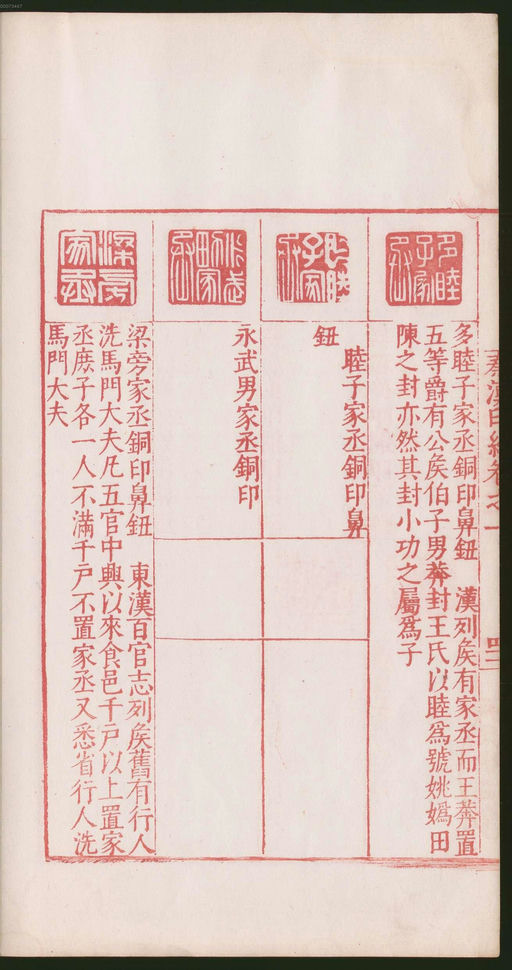 00073487
秦漢印統卷之一
多睦子家丞
多睦子家丞銅印鼻鈕 漢列侯有家丞而王莽置
五等爵有公侯伯子男莽封王氏以睦爲號姚嬀田
陳之封亦然其封小功之屬爲子
睦子家丞銅印鼻
鈕
永武男家丞
永武男家丞銅印
梁旁家丞
梁旁家丞銅印鼻鈕 東漢百官志列侯舊有行人
洗馬門大夫凡五官中興以來食邑千戶以上置家
丞庶子各一人不滿千戶不置家丞又悉省行人洗
馬門大夫